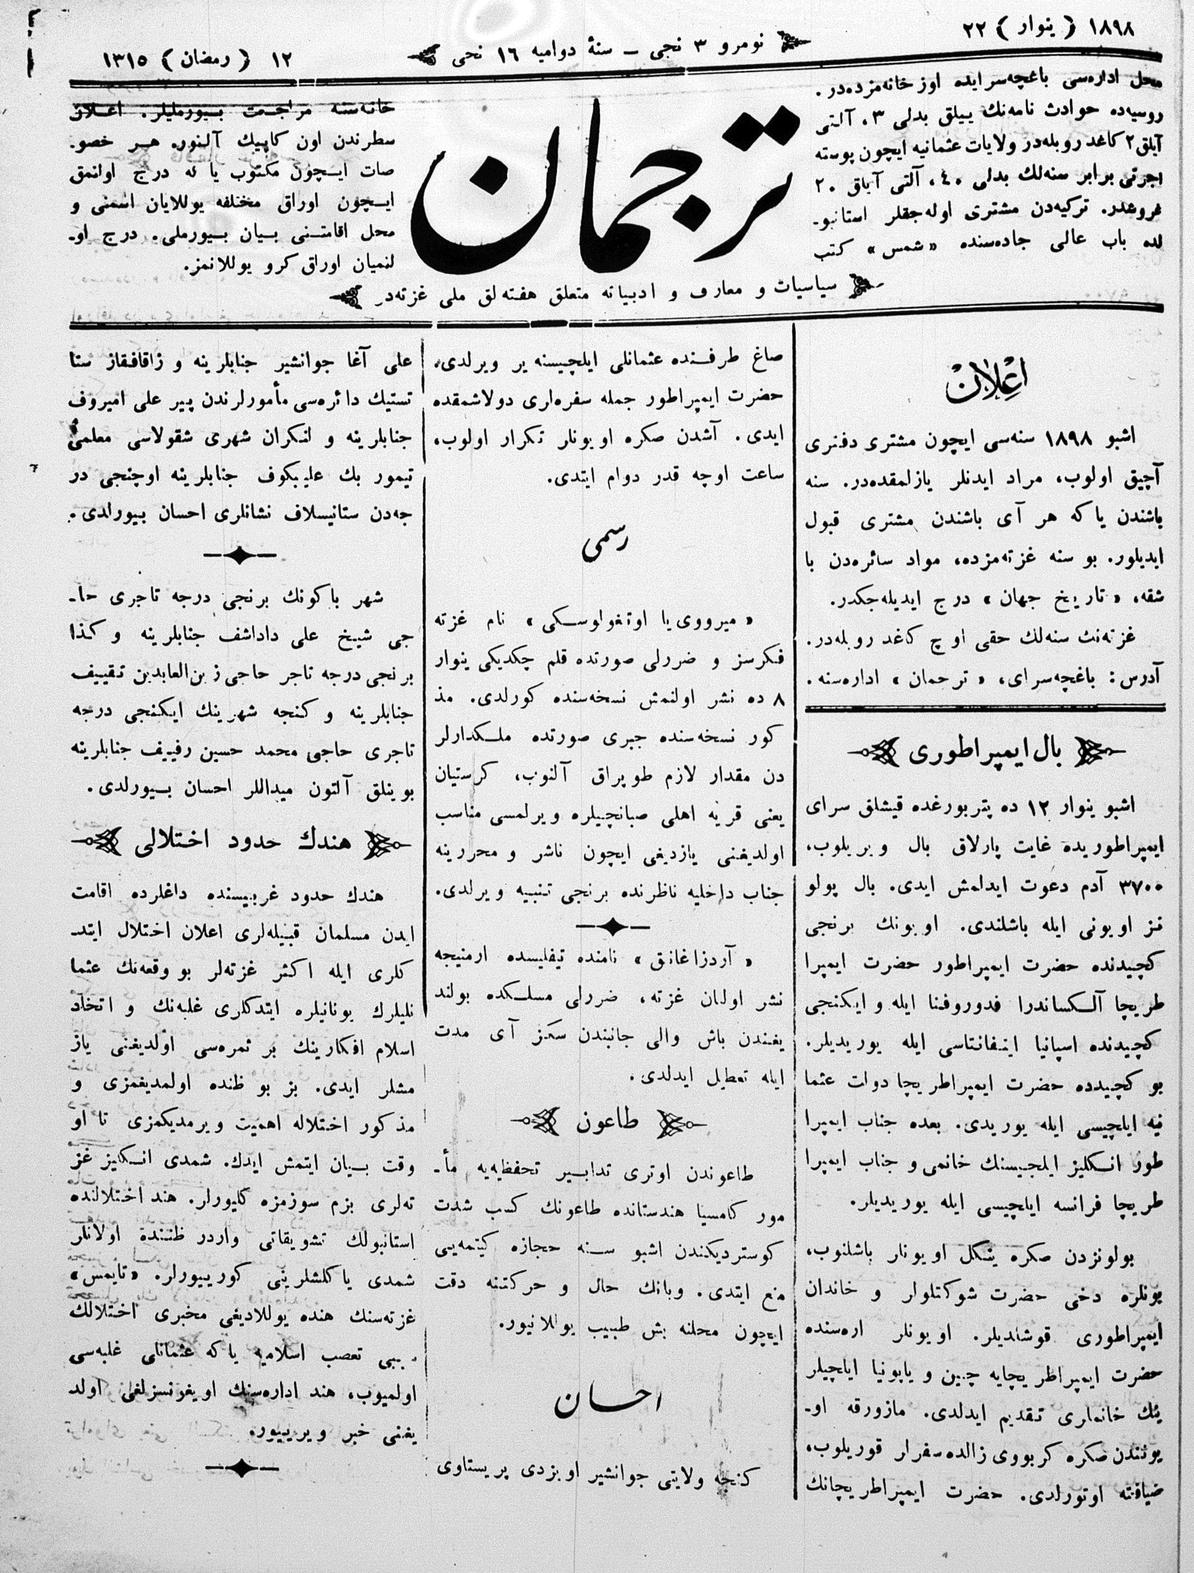 ١٨٩٨ ( ينوار ) ٢٢
نومرو ٣ نجى ــ سنۀ دواميه ١٦ نجى
١٢ ( رمضان ) ١٣١٥
محل اداره‌سى باغچه‌سرايده اوز خانه‌مزده‌در.
روسيه‌ده حوادث نامه‌نك ييللق بدلى ٣، آلتى
آيلق ٢ كاغد روبله‌در ولايات عثمانيه ايچون پوسته
اجرتى برابر سنه‌لك بدلى ٤٠، آلتى آيلق ٢٠
غروشدر. تركيه‌دن مشترى اوله‌جقلر استانبو-
لده باب عالى جاده‌سنده «شمس» كتب
ترجمان
خانه‌سنه مراجعت بيورمليلر. اعلان
سطرندن اون كاپيك آلنور. هر خصو-
صات ايچون مكتوب يا له درج اولنمق
ايچون اوراق مختلفه يوللايان اسمنى و
محل اقامتنى بيان بيورملى. درج او-
لنميان اوراق كرو يوللانمز.
سياسيات و معارف و ادبياته متعلق هفته‌لق ملى غزته‌در
اعلان
اشبو ١٨٩٨ سنه‌سى ايچون مشترى دفترى
آچيق اولوب، مراد ايدنلر يازلمقده‌در. سنه
باشندن ياكه هر آى باشندن مشترى قبول
ايديلور. بو سنه غزته‌مزده، مواد سائره‌دن با
شقه، «تاريخ جهان» درج ايديله‌جكدر.
غزته‌نك سنه‌لك حقى اوچ كاغد روبله‌در.
آدرس: باغچه‌سراى، «ترجمان» اداره‌سنه.
بال ايمپراطورى
اشبو ينوار ١٢ ده پتربورغده قيشلق سراى
ايمپراطوريده غايت پارلاق بال ويريلوب،
٣٧٠٠ آدم دعوت ايدلمش ايدى. بال پولو
نز اويونى ايله باشلندى. اويونك برنجى
كچيدنده حضرت ايمپراطور حضرت ايمپرا
طريچا آلكساندرا فدوروفنا ايله و ايكنجى
كچيدنده اسپانيا اينفانتاسى ايله يوريديلر.
بو كچيدده حضرت ايمپراطريچا دولت عثما
نيه ايلچيسى ايله يوريدى. بعده جناب ايمپرا
طور انكليز ايلچيسنك خانمى و جناب ايمپرا
طريچا فرانسه ايلچيسى ايله يوريديلر.
پولونزدن صكره يشكل اويونلر باشلنوب،
بونلره دخى حضرت شوكتلولر و خاندان
ايمپراطورى قوشلديلر. اويونلر اره‌سنده
حضرت ايمپراطريچايه چين و ياپونيا ايلچيلر
ينك خانملرى تقديم ايدلدى. مازورقه او-
يوننندن صكره كربووى زالده سفرلر قوريلوب،
ضيافته اوتورلدى. حضرت ايمپراطريچانك
صاغ طرفنده عثمانلى ايلچيسنه ير ويرلدى،
حضرت ايمپراطور جمله سفره‌لرى دولاشمقده
ايدى. آشدن صكره اويونلر تكرار اولوب،
ساعت اوچه قدر دوام ايتدى.
رسمى
«ميرووى يا اوتغولوسكى» نام غزته
فكرسز و ضررلى صورتده قلم چكديكى ينوار
٨ ده نشر اولنمش نسخه‌سنده كورلدى. مذ
كور نسخه‌سنده جبرى صورتده ملكدارلر
دن مقدار لازم طوپراق آلنوب، كرستيان
يعنى قريه اهلى صبانچيلره ويرلمسى مناسب
اولديغنى يازديغى ايچون ناشر و محررينه
جناب داخليه ناظرنده برنجى تنبيه ويرلدى.
«آردزاغانق» نامنده تيفليسده ارمنيجه
نشر اولنان غزته، ضررلى مسلكده بولند
يغندن باش والى جانبندن سكز آى مدت
ايله تعطيل ايدلدى.
طاعون
طاعوندن اوترى تدابير تحفظيه‌يه مأ-
مور كامسيا هندستانده طاعونك كسب شدت
كوسترديكندن اشبو سنه حجازه كيتمه‌يى
منع ايتدى. وبانك حال و حركتنه دقت
ايچون محلنه بش طبيب يوللانيور.
احسان
كنجه ولايتى جوانشير اويزدى پريستاوى
على آغا جوانشير جنابلرينه و زاقافقاز ستا
تستيك دائره‌سى مأمورلرندن پير على اميروف
جنابلرينه و لنكران شهرى شقولاسى معلمى
تيمور بك عليبكوف جنابلرينه اوچنجى در
جه‌دن ستانيسلاف نشانلرى احسان بيورلدى.
شهر باكونك برنجى درجه تاجرى حا-
جى شيخ على داداشف جنابلرينه و كذا
برنجى درجه تاجر حاجى زين‌العابدين تقييف
جنابلرينه و كنجه شهرينك ايكنجى درجه
تاجرى حاجى محمد حسين رفييف جنابلرينه
بوينلق آلتون ميداللر احسان بيورلدى.
هندك حدود اختلالى
هندك حدود غربيسنده داغلرده اقامت
ايدن مسلمان قبيله‌لرى اعلان اختلال ايتد-
كلرى ايله اكثر غزته‌لر بو وقعه‌نك عثما
نليلرك يونانيلره ايتدكلرى غلبه‌نك و اتحاد
اسلام افكارينك بر ثمره‌سى اولديغنى ياز
مشلر ايدى. بز بو ظنده اولمديغمزى و
مذكور اختلاله اهميت ويرمديكمزى تا او
وقت بيان ايتمش ايدك. شمدى انكليز غز
ته‌لرى بزم سوزمزه كليورلر. هند اختلالنده
استانبولك تشويقاتى واردر ظننده اولانلر
شمدى ياكلشلرينى كورييورلر. «تايمس»
غزته‌سنك هنده يوللاديغى مخبرى اختلالك
سببى تعصب اسلاميه ياكه عثمانلى غلبه‌سى
اولميوب، هند اداره‌سنك اويغونسزلغى اولد
يغنى خبر ويرييور.